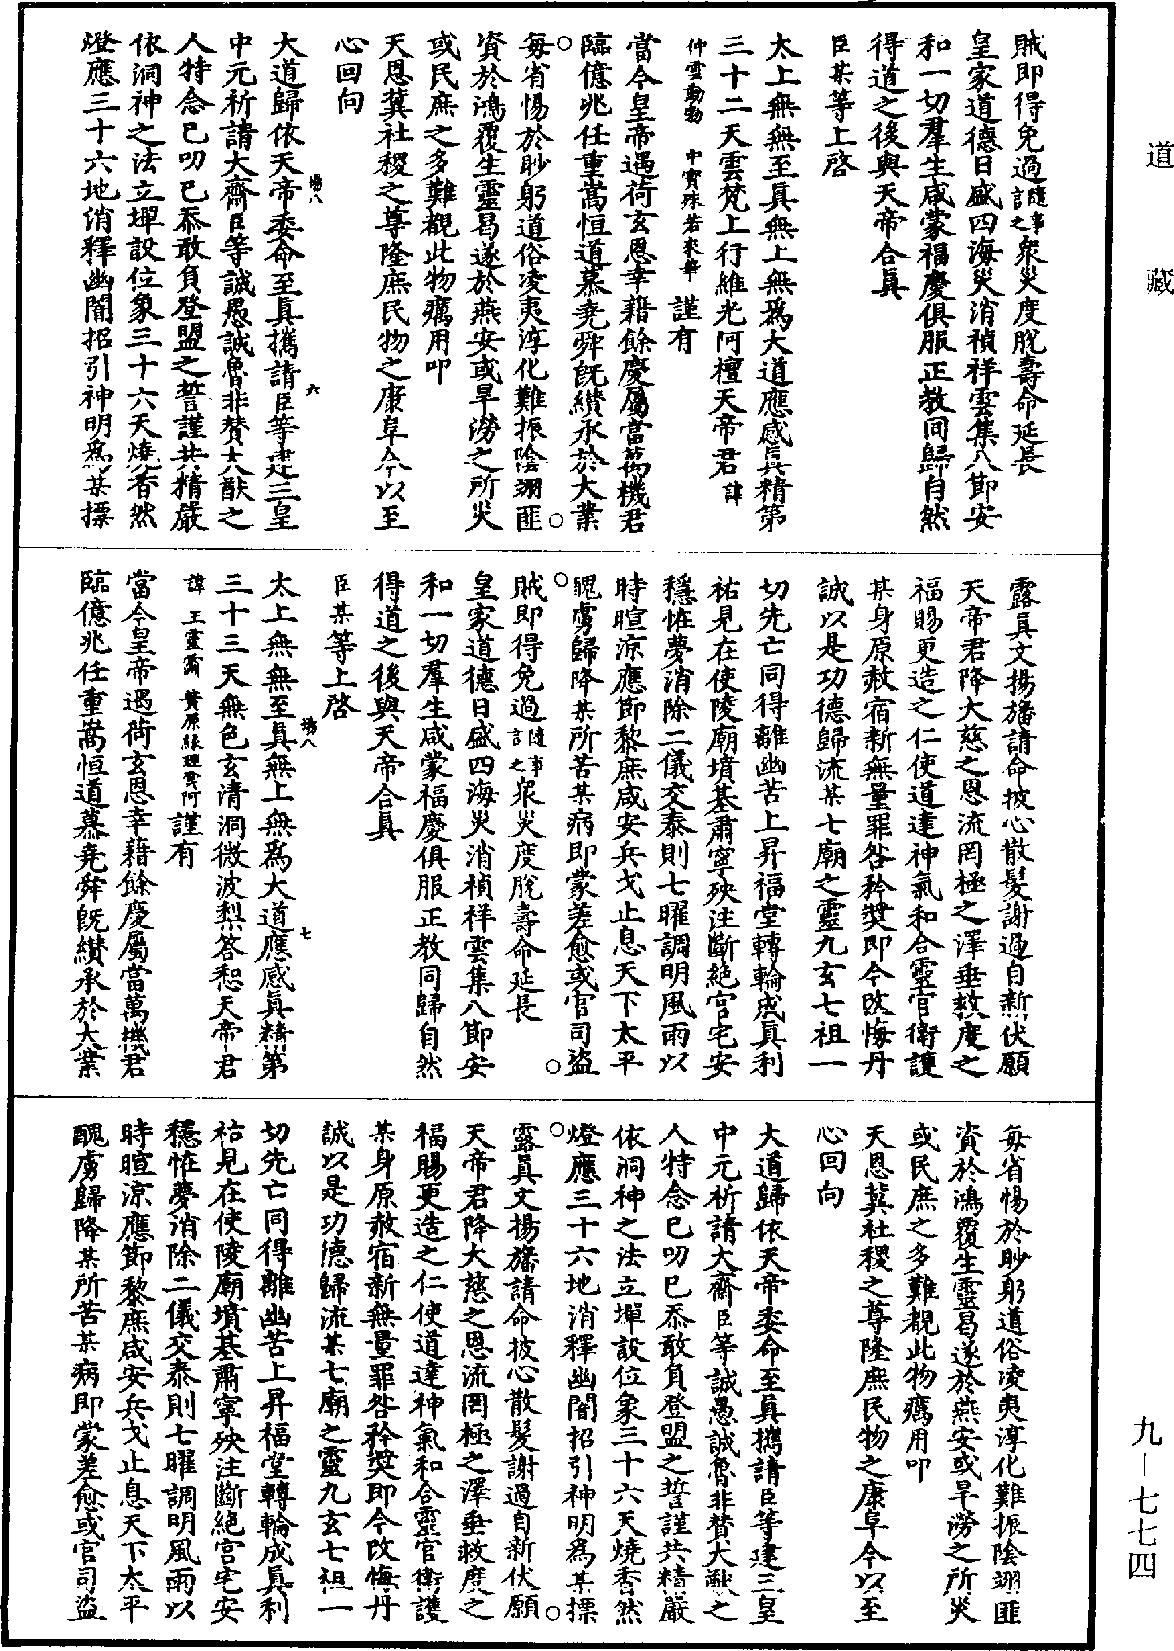 道藏
賊即得免過隨事言之衆災度脫壽命延長
皇家道德日盛四海災消禎祥雲集八節安
和一切羣生咸蒙福慶俱服正教同歸自然
得道之後與天帝合真
臣某等上啓
太上無無至真無上無爲大道應感真精第
三十二天雲梵上行維光阿檀天帝君諱
仲靈勳勃 中寶珠若來解 謹有
當今皇帝遇荷玄恩幸藉餘慶屬當萬機君
臨億兆任重嵩恒道慕堯舜旣纘承於大業
每省惕於眇躬道俗凌夷淳化難振陰翊匪
資於鴻覆生靈曷遂於燕安或旱澇之所災
或民庶之多難覩此物癘用叩
天恩冀社稷之尊隆庶民物之康阜今以至
心回向
大道歸依天帝委命至真攜請臣等建三皇
中元祈請大齋臣等誠愚誠魯非賛大猷之
人特念已叨已忝敢負登盟之誓謹共精嚴
依洞神之法立墠設位象三十六天燒香然
燈應三十六地消釋幽闇招引神明爲某摽
露真文揚旛請命披心散髮謝過自新伏願
天帝君降大慈之恩流罔極之澤垂救度之
福賜更造之仁使道達神氣和合靈官衛護
某身原赦宿新無量罪咎矜奬即今改悔丹
誠以是功德歸流某七廟之靈九玄七祖一
切先亡同得離幽苦上昇福堂轉輪成真利
祐見在使陵廟墳基肅寧殃注斷絕宫宅安
穩恠夢消除二儀交泰則七曜調明風雨以
時暄涼應節黎庶咸安兵戈止息天下太平
醜虜歸降某所苦某病即蒙差愈或官司盜
賊即得免過隨事言之衆災度脫壽命延長
皇家道德日盛四海災消禎祥雲集八節安
和一切羣生咸蒙福慶俱服正教同歸自然
得道之後與天帝合真
臣某等上啓
太上無無至真無上無爲大道應感真精第
三十三天無色玄清洞微波梨答惒天帝君
諱 謹有
當今皇帝遇荷玄恩幸藉餘慶屬當萬機君
臨億兆任重嵩恒道慕堯舜旣纘承於大業
每省惕於眇躬道俗凌夷淳化難振陰翊匪
資於鴻覆生靈曷遂於燕安或旱澇之所災
或民庶之多難覩此物癘用叩
天恩冀社稷之尊隆庶民物之康阜今以至
心回向
大道歸依天帝委命至真攜請臣等建三皇
中元祈請大齋臣等誠愚誠魯非賛大猷之
人特念已叨已忝敢負登盟之誓謹共精嚴
依洞神之法立墠設位象三十六天燒香然
燈應三十六地消釋幽闇招引神明爲某摽
露真文揚旛請命披心散髮謝過自新伏願
天帝君降大慈之恩流罔極之澤垂救度之
福賜更造之仁使道達神氣和合靈官衛護
某身原赦宿新無量罪咎矜奬即今改悔丹
誠以是功德歸流某七廟之靈九玄七祖一
切先亡同得離幽苦上昇福堂轉輪成真利
祐見在使陵廟墳基肅寧殃注斷絕宫宅安
穩恠夢消除二儀交泰則七曜調明風雨以
時暄涼應節黎庶咸安兵戈止息天下太平
醜虜歸降某所苦某病即蒙差愈或官司盜
九—七七四